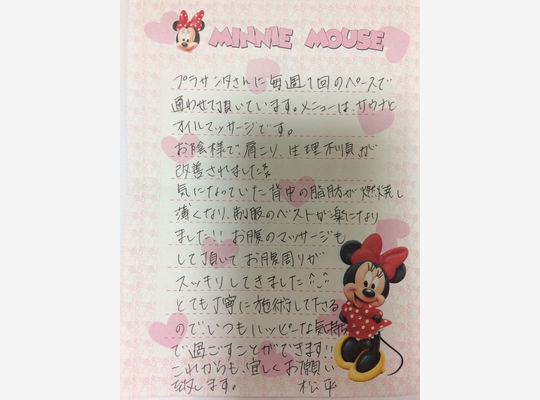 MINNIE MOUSE
プラサンタさんに毎週1回のペースで
通わせて頂いています。メニューは、サウナと
オイルマッサージです。
お陰様で、肩こり、生理不順が
改善されました
気になっていた背中の脂肪が燃焼し
薄くなり、制服のベストが楽になり
ました!! お腹のマッサージも
して頂いてお腹周りが
スッキリしてきました^_^
とても丁寧に施術して下さる
のでいつもハッピーな気持
で過ごすことができます!!
これからも、宜しくお願い
致します。 松平